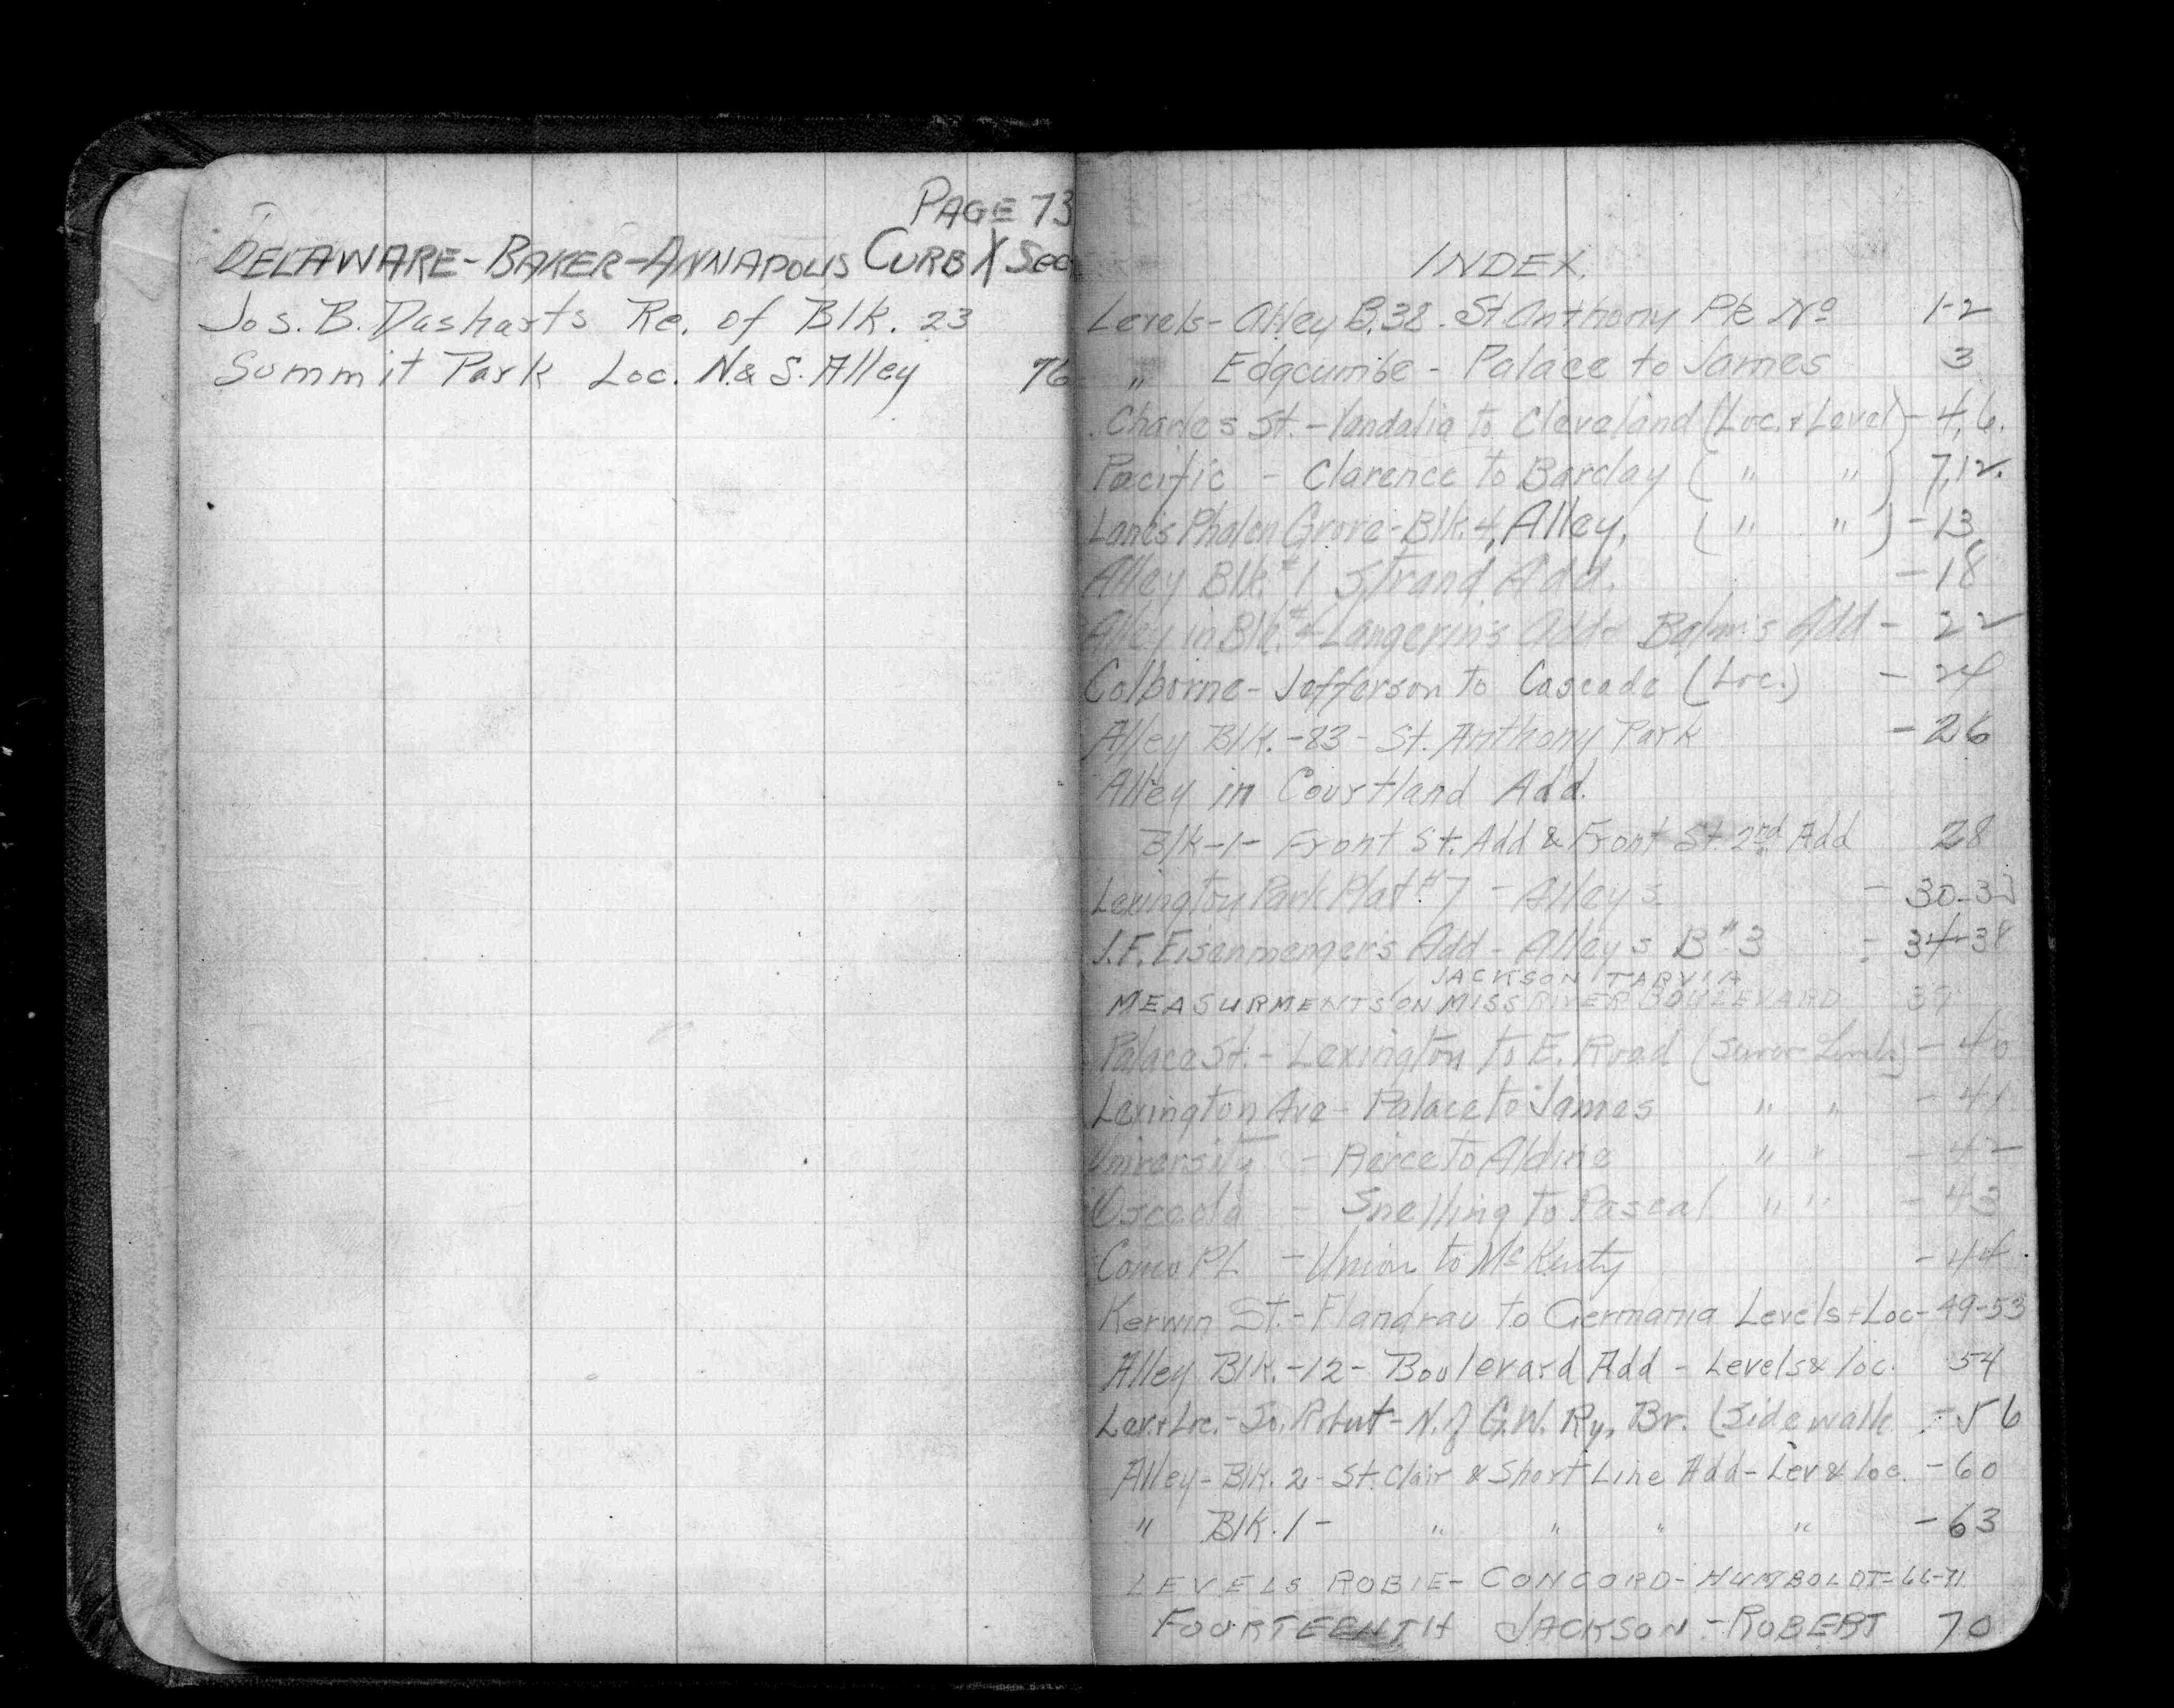 PAGE 73
DELAWARE-BAKER-ANNAPOLIS CURB X Sec
Jos. B. Dasharts Re. of Blk. 23
Summit Park Loc. N.& S. Alley 76
INDEX.
Levels- Alley B.38. St Anthony Pk Nº 1-2
" Edgcumbe - Palace to James 3
Charles St. - Vandalia to Cleveland (Loc. & Level) - 4,6.
Pacific - Clarence to Barclay ( " " ) 7,12.
Lane's Phalen Grove - Blk. 4, Alley, ( " " ) - 13
Alley Blk. #1 Strand Add. - 18
Alley in Blk. # Langevin's Add & Add - 22
Colborne - Jefferson to Cascade (Loc.) - 24
Alley Blk. -83- St. Anthony Park - 26
Alley in Courtland Add.
Blk-1- Front St. Add & Front St. 2nd Add 28
Lexington Park Plat #7 - Alleys - 30-33
J.F. Eisenmenger's Add - Alleys B #3 - 34-38
JACKSON TARVIA
MEASURMENTS ON MISS RIVER BOULEVARD 39
Palace St. - Lexington to E. Road (Sewer Levels) - 40
Lexington Ave - Palace to James " " - 41
University - Pierce to Aldine " " - 42
Osceola - Snelling to Pascal " " - 43
Como Pl. - Union to McKenty - 44
Kerwin St. - Flandrau to Germania Levels + Loc - 49-53
Alley Blk. -12- Boulevard Add - Levels & loc. 54
Lev. & Loc. - So. Robert - N. of G.W. Ry. Br. (Sidewalk - 56
Alley - Blk. 2 - St. Clair & Short Line Add - Lev & loc. - 60
" Blk. 1 - " " " " - 63
LEVELS ROBIE - CONCORD - HUMBOLDT = 66-71
FOURTEENTH JACKSON - ROBERT 70